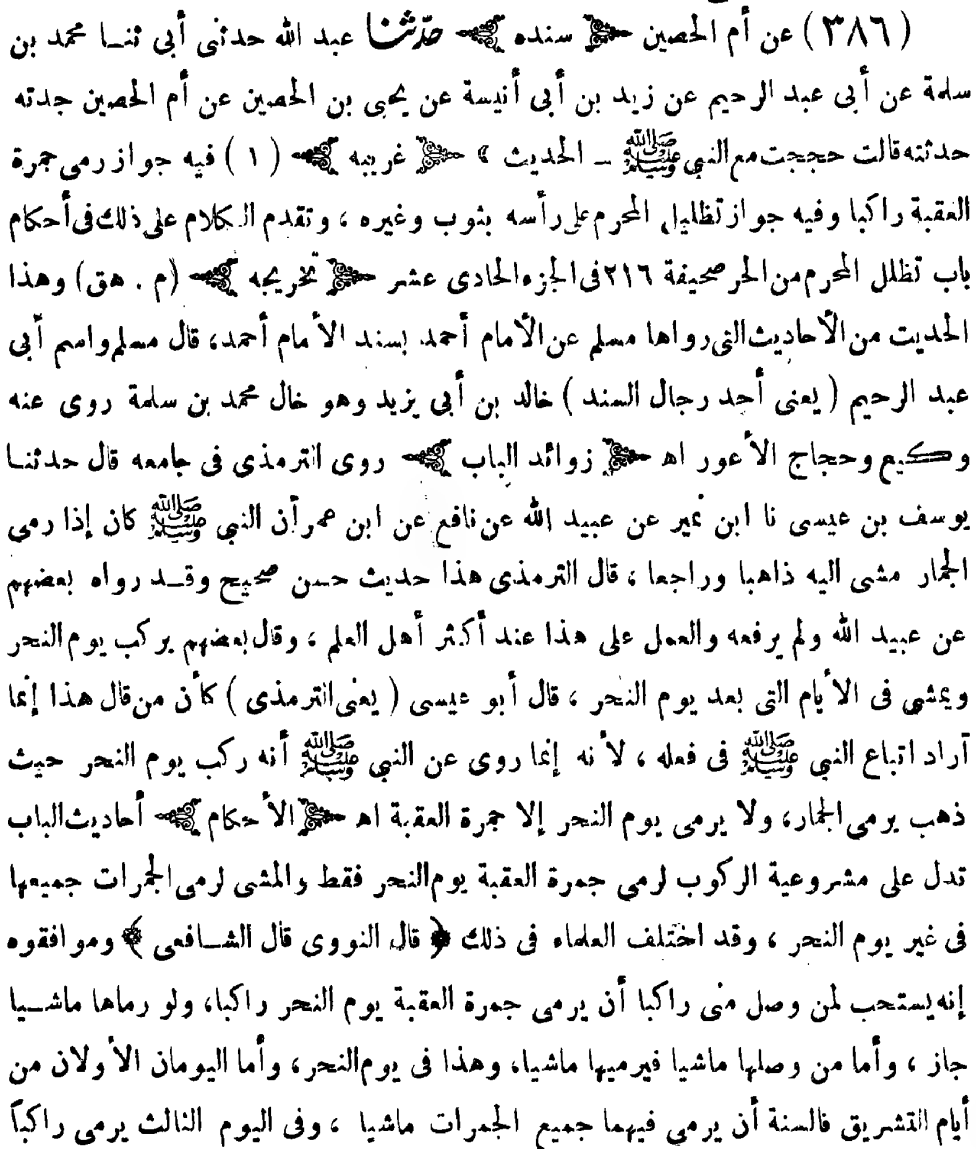 (٣٨٦) عن أم الحصين ﴿ سنده ﴾ حدّثنا عبد الله حدثنى أبى ثنا محمد بن
سلمة عن أبى عبد الرحيم عن زيد بن أبى أنيسة عن يحيى بن الحصين عن أم الحصين جدته
حدثته قالت حججت مع النبى ﷺ ــ الحديث » ﴿ غريبه ﴾ (١) فيه جواز رمى جمرة
العقبة راكبا وفيه جواز تظليل المحرم على رأسه بثوب وغيره ، وتقدم الكلام على ذلك فى أحكام
باب تظلل المحرم من الحر صحيفة ٢١٦ فى الجزء الحادى عشر ﴿ تخريجه ﴾ (م . هق) وهذا
الحديت من الأحاديث التى رواها مسلم عن الأمام أحمد بسند الأمام أحمد، قال مسلم واسم أبى
عبد الرحيم (يعنى أحد رجال السند) خالد بن أبى يزيد وهو خال محمد بن سلمة روى عنه
وكيع وحجاج الأعور اه ﴿ زوائد الباب ﴾ روى الترمذى فى جامعه قال حدثنا
يوسف بن عيسى نا ابن نمير عن عبيد الله عن نافع عن ابن عمر أن النبى ﷺ كان إذا رمى
الجمار مشى اليه ذاهبا وراجعا ، قال الترمذى هذا حديث حسن صحيح وقد رواه بعضهم
عن عبيد الله ولم يرفعه والعمل على هذا عند أكثر أهل العلم ، وقال بعضهم يركب يوم النحر
ويمشى فى الأيام التى بعد يوم النحر ، قال أبو عيسى (يعنى الترمذى) كأن من قال هذا إنما
آراد اتباع النبى ﷺ فى فعله ، لأنه إنما روى عن النبى ﷺ أنه ركب يوم النحر حيث
ذهب يرمى الجمار، ولا يرمى يوم النحر إلا جمرة العقبة اه ﴿ الأحكام ﴾ أحاديث الباب
تدل على مشروعية الركوب لرمى جمرة العقبة يوم النحر فقط والمشى لرمى الجمرات جميعها
فى غير يوم النحر ، وقد اختلف العلماء فى ذلك ﴿ قال النووى قال الشافعى ﴾ وموافقوه
إنه يستحب لمن وصل منى راكبا أن يرمى جمرة العقبة يوم النحر راكبا، ولو رماها ماشيا
جاز ، وأما من وصلها ماشيا فيرميها ماشيا، وهذا فى يوم النحر، وأما اليومان الأولان من
أيام التشريق فالسنة أن يرمى فيهما جميع الجمرات ماشيا ، وفى اليوم الثالث يرمى راكباً